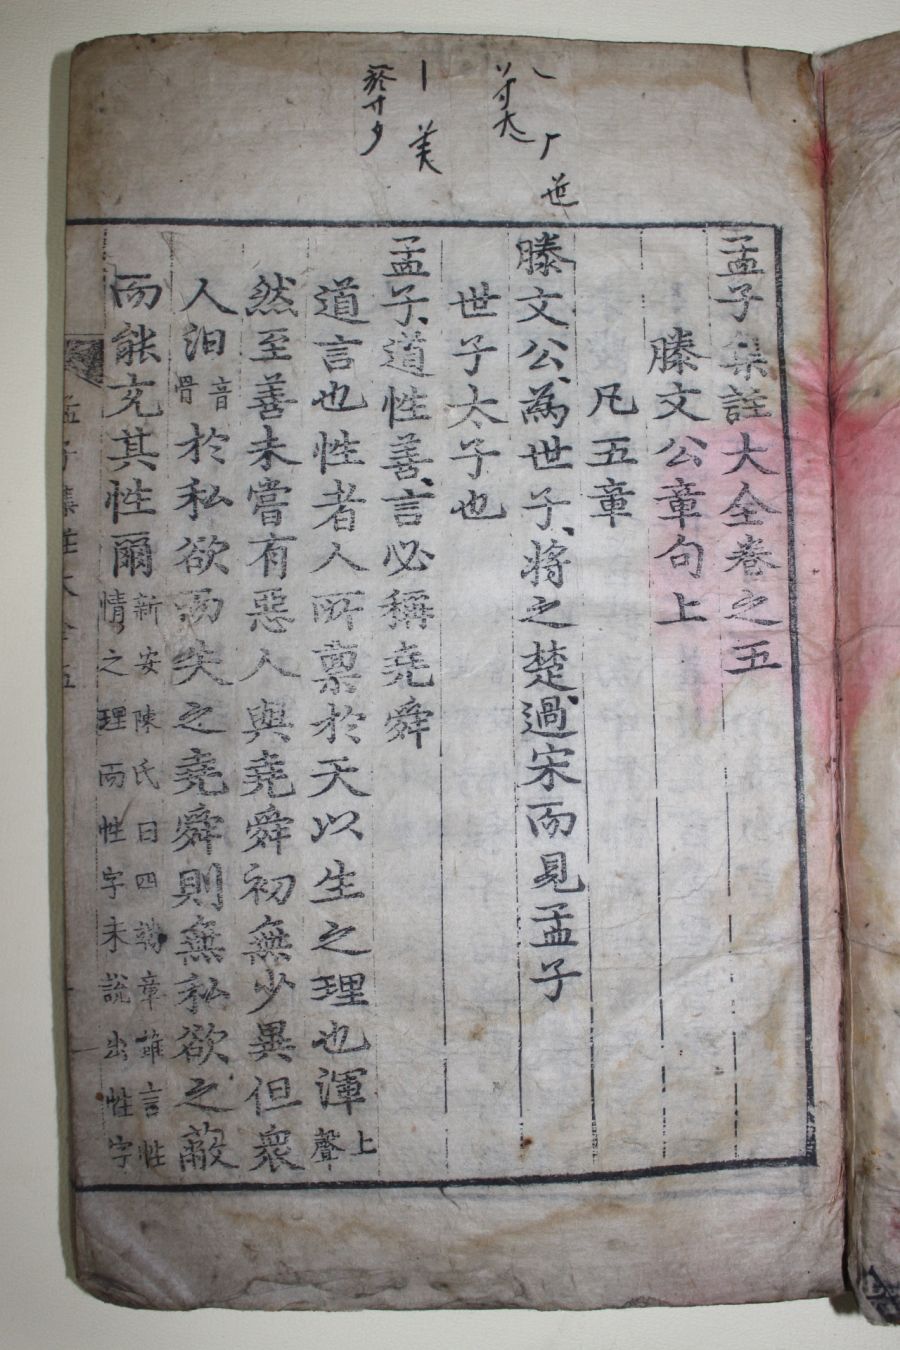 孟子集註大全卷之五
滕文公章句上
凡五章
滕文公爲世子將之楚過宋而見孟子
世子太子也
孟子道性善言必稱堯舜
道言也性者人所稟於天以生之理也渾上聲
然至善未嘗有惡人與堯舜初無少異但衆
人汨音骨於私欲而失之堯舜則無私欲之蔽
而能充其性爾新安陳氏曰四端章雖言性
情之理而性字未說出性字
孟子集註大全五